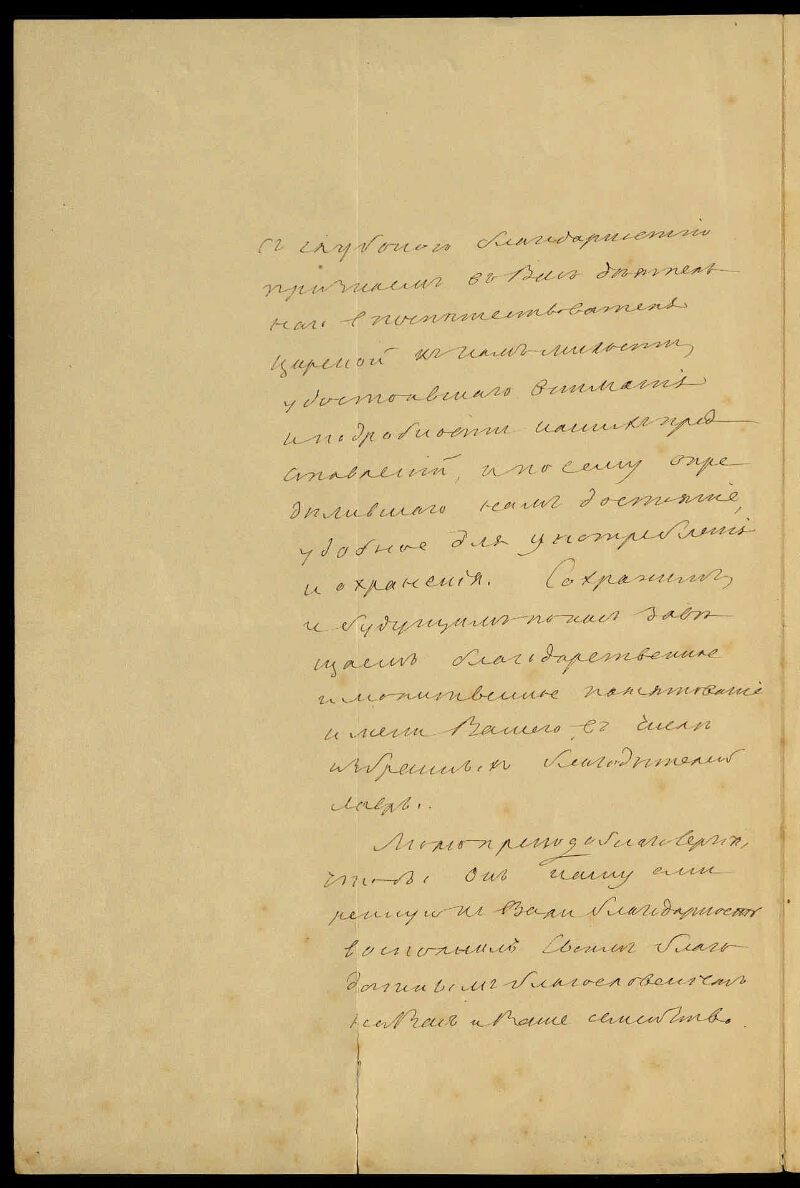 Съ глубокою благодарностію
признаемъ въ Васъ дѣятель-
наго споспѣшествователя
Царской къ намъ милости,
удостоявшаго вниманія
и подробности нашихъ пред-
ставленій, и по сему опре-
дѣлившаго намъ достояніе,
удобное для употребленія
и охраненія. Сохранимъ,
и будущимъ по насъ завѣ-
щаемъ благодарственное
и молитвенное памятованіе
имени Вашего въ числѣ
избранныхъ благодѣтелей
лавры.
Молю преподобнаго Сергія,
чтобы онъ нашу сми-
ренную къ Вамъ благодарность
восполнилъ Своимъ благо-
датнымъ благословеніемъ
на Васъ и Ваше семейство.